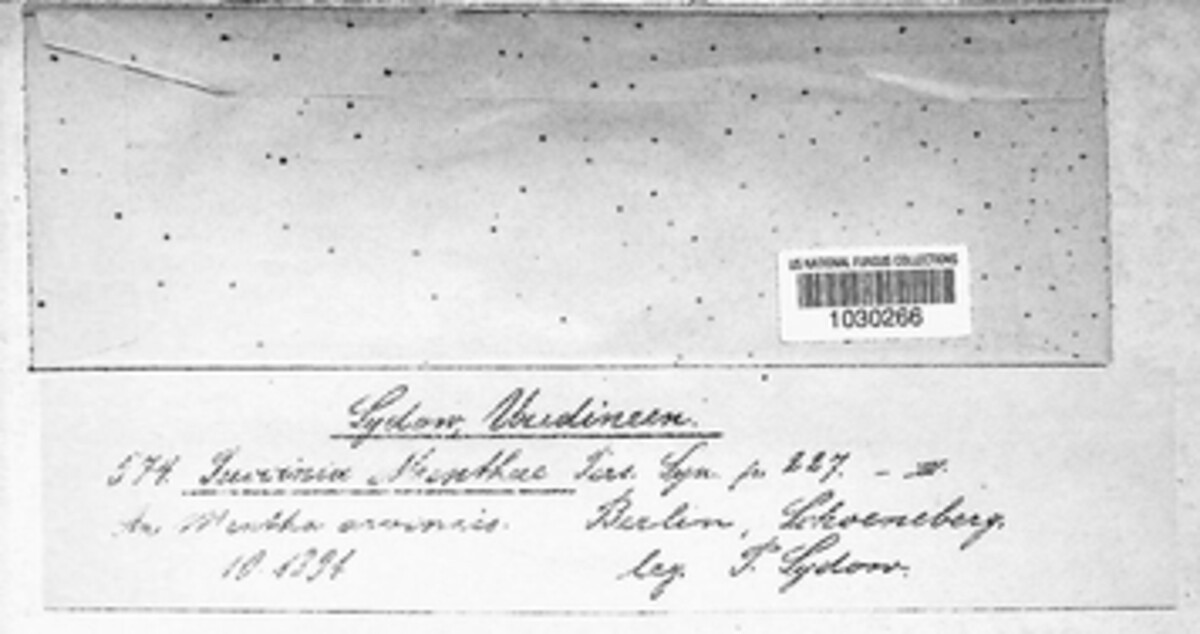 US NATIONAL FUNGUS COLLECTIONS
1030266
Sydow, Uredineen.
574. Puccinia Menthae Pers. Syn. p. 227. – III.
An Mentha arvensis. Berlin, Schoeneberg.
10. 1891 leg. P. Sydow.